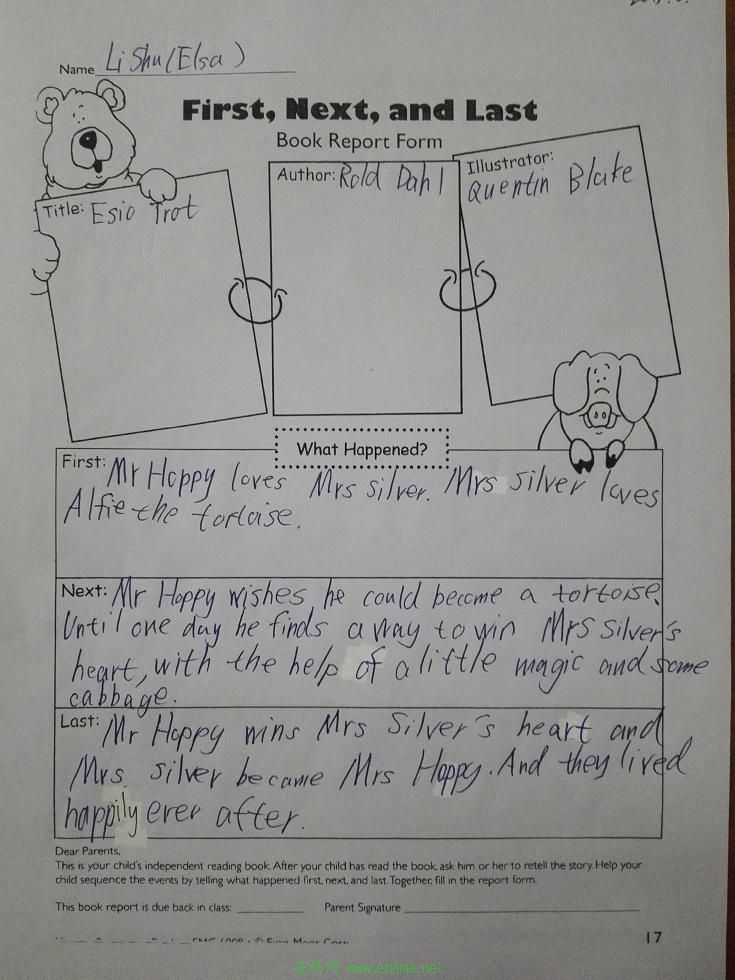 Name Li Shu (Elsa)
First, Next, and Last
Book Report Form
Title: Esio Trot
Author: Rold Dahl
Illustrator:
Quentin Blake
What Happened?
First: Mr Hoppy loves Mrs silver. Mrs silver loves
Alfie the tortoise.
Next: Mr Hoppy wishes he could become a tortoise.
Until one day he finds a way to win Mrs Silver's
heart, with the help of a little magic and some
cabbage.
Last: Mr Hoppy wins Mrs Silver's heart and
Mrs silver became Mrs Hoppy. And they lived
happily ever after.
Dear Parents,
This is your child's independent reading book. After your child has read the book, ask him or her to retell the story. Help your
child sequence the events by telling what happened first, next, and last. Together, fill in the report form.
This book report is due back in class: Parent Signature
17